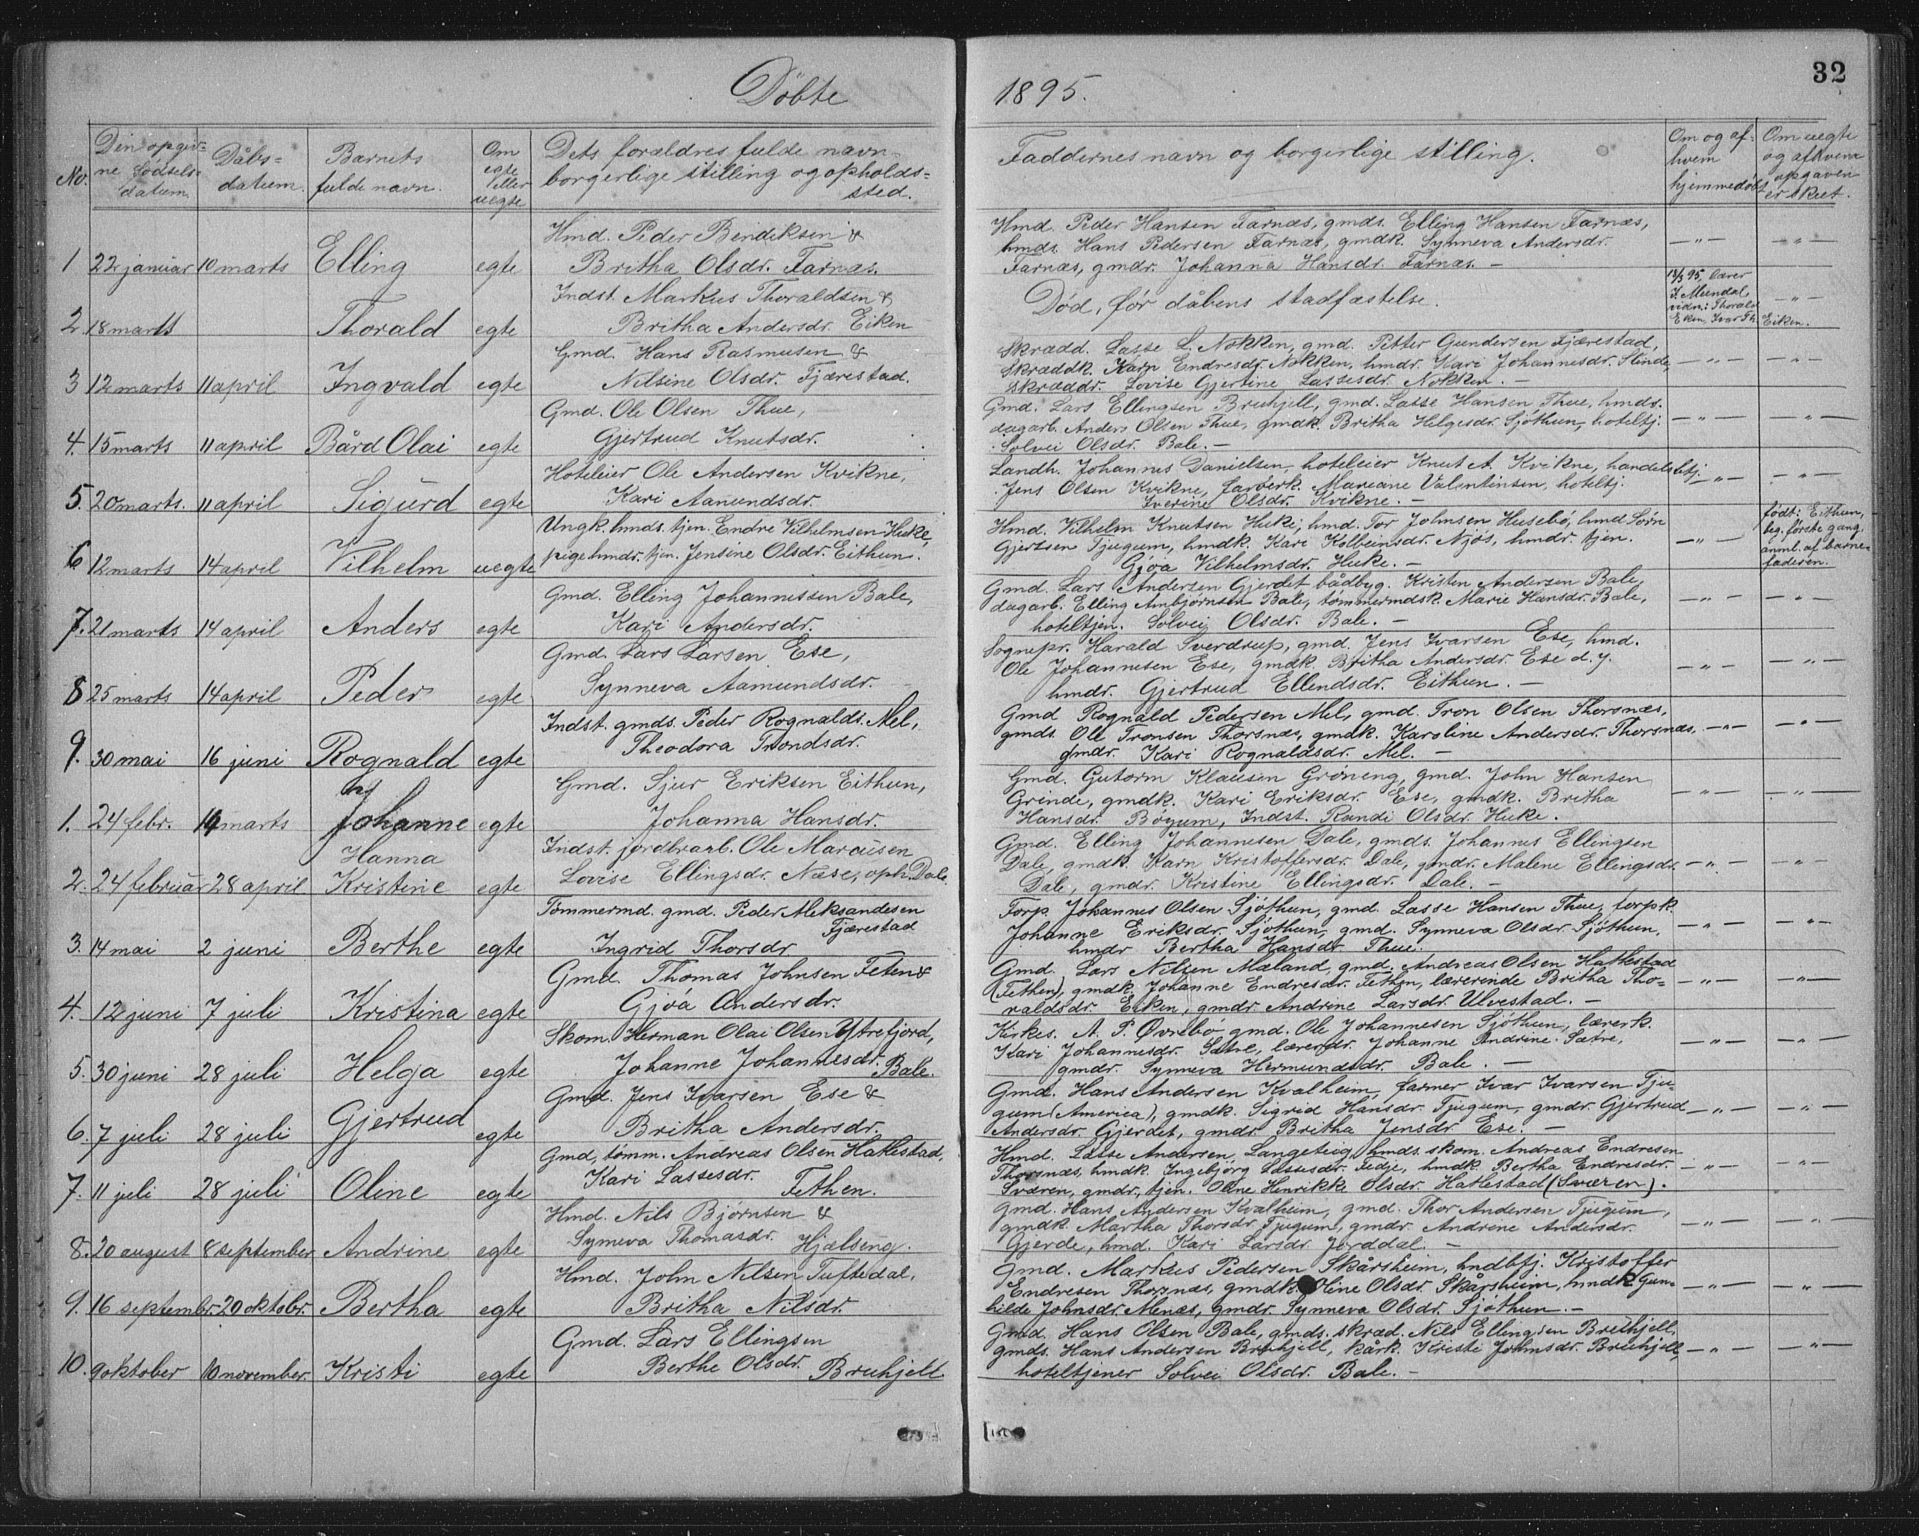 Døbte
1895.
32
No.
Den opgiv-
ne Fødsels-
datum.
Dåbs-
datum.
Barnets
fulde navn.
Om
egte
eller
uegte
Dets forældres fulde navn
borgerlige stilling og opholds-
sted.
Faddernes navn og borgerlige stilling.
Om og af
hvem
hjemmedøbt
Om uegte
og af hvem
opgaven
er skeet.
1 22 januar 10 marts Elling egte
Hmd. Peder Bendiksen &
Britha Olsdr. Farnæs.
Hmd. Peder Hansen Farnæs, gmds. Elling Hansen Farnæs,
hmds. Hans Pedersen Farnæs, gmdk. Synneva Andersdr.
Farnæs, gmdr. Johanna Hansdr. Farnæs. —
— „ — — „ —
2 18 marts Thorald egte
Indst. Markus Thoraldsen &
Britha Andersdr. Eiken
Død, før dåbens stadfæstelse.
18/3 95. Lærer
J. Mundal,
vidn: Thorald
Eken, Ivar Th. Eiken.
— „ —
3 12 marts 11 april Ingvald egte
Gmd. Hans Rasmusen &
Nilsine Olsdr. Fjærestad.
Skrædd. Lasse L. Nøkken, gmd. Petter Gundersen Fjærestad,
Skræddk. Karn Endresdr. Nøkken, hmdr. Kari Johannesdr. Stende,
Skræddr. Lovise Gjertine Lassesdr. Nøkken. —
— „ — — „ —
4. 15 marts 11 april Bård Olai egte
Gmd. Ole Olsen Thue,
Gjertrud Knutsdr.
Gmd. Lars Ellingsen Breihjell, gmd. Lasse Hansen Thue, hmds.
dagarb. Anders Olsen Thue, gmdk. Britha Helgesdr. Sjøthun, hoteltj.
Solvei Olsdr. Bale. —
— „ — — „ —
5. 20 marts. 11 april Sigurd egte
Hoteleier Ole Andersen Kvikne,
Kari Aamundsdr.
Landh. Johannes Danielsen, hoteleier Knut A. Kvikne, handelsbtj.
Jens Olsen Kvikne, farverk. Mariane Valentinsen, hoteltj.
Sverine Olsdr. Kvikne. —
— „ — — „ —
6 12 marts 14 april Vilhelm uegte
Ungk. hmds. tjen. Endre Vilhelmsen Huke,
pige hmdr. tjen. Jensine Olsdr. Eithun.
Hmd. Vilhelm Knutsen Huke, hmd. Tor Johnsen Husebö, hmd Sørn
Gjertsen Tjugum, hmdk. Kari Kolbeinsdr. Njøs, hmdr. tjen.
Gjøa Vilhelmsdr. Huke. —
— „ —
født: Eithun,
beg. første gang
anml. af barne-
faderen.
7. 21 marts 14 april Anders egte
Gmd. Elling Johannessen Bale,
Kari Andersdr.
Gmd. Lars Andersen Gjerdet bådbyg. Kristen Andersen Bale,
dagarb. Elling Anbjørnsen Bale, tømmermdsk. Marie Hansdr. Bale,
hoteltjen. Solvei Olsdr. Bale. —
— „ — — „ —
8 25 marts 14 april Peder egte
Gmd. Lars Larsen Ese,
Synneva Aamundsdr.
Sognepr. Harald Sverdrup, gmd. Jens Ivarsen Ese, hmd.
Ole Johannesen Ese, gmdk. Britha Andersdr. Ese d.y.
hmdr. Gjertrud Ellendsdr. Eithun. —
— „ — — „ —
9. 30 mai 16 juni Rognald egte
Indst. gmds. Peder Rognalds. Mel,
Theodora Trondsdr.
Gmd Rognald Pedersen Mel, gmd. Tron Olsen Thorsnæs,
gmds. Ole Tronsen Thorsnæs, gmdk. Karoline Andersdr. Thorsnæs,
gmdr. Kari Rognaldsdr. Mel. —
— „ — — „ —
1. 24 febr. 14 marts Johanne egte
Gmd. Sjur Eriksen Eithun,
Johanna Hansdr.
Gmd. Gutorm Klausen Grøneng, gmd. John Hansen
Grinde, gmdk. Kari Eriksdr. Ese, gmdk. Britha
Hansdr. Bøyum, Indst. Randi Olsdr. Huke.
— „ — — „ —
2. 24 februar 28 april Hanna
Kristine egte
Indst. jordbrarb. Ole Marcusen
Lovise Ellingsdr. Næse, oph. Dale.
Gmd. Elling Johannesen Dale, gmds. Johannes Ellingsen
Dale, gmdk. Karn Kristoffersdr. Dale, gmdr. Malene Ellingsdr.
Dale, gmdr. Kristine Ellingsdr. Dale. —
— „ — — „ —
3. 14 mai 2 juni Berthe egte
Tømmermd. gmd. Peder Aleksandesen
Fjærestad
Ingrid Thorsdr
Forp. Johannes Olsen Sjøthun, gmd. Lasse Hansen Thue, forpk.
Johanne Eriksdr. Sjøthun, gmd. Synneva Olsdr. Sjøthun,
hmdr Bertha Hansdr. Thue.
— „ — — „ —
4. 12 juni 7 juli Kristina egte
Gmd. Thomas Johnsen Feten &
Gjøa Andersdr.
Gmd. Lars Nilsen Mæland, gmd. Andreas Olsen Hatlestad
(Fethen), gmdk. Johanne Endresdr. Fethen, lærerende Britha Tho-
raldsdr. Eiken, gmdr. Andrine Larsdr. Ulvestad. —
— „ — — „ —
5. 30 juni 28 juli Helga egte
Skom. Herman Olai Olsen Ytrefjord,
Johanne Johannesdr. Bale.
Kirkes. A. P. Øvrebø, gmd. Ole Johannesen Sjøthun, lærerk.
Kari Johannesdr. Sætre, lærerdr. Johanne Andrine Sætre,
gmdr. Synneva Hermundsdr. Bale. —
— „ — — „ —
6. 7 juli 28 juli Gjertrud egte
Gmd. Jens Ivarsen Ese &
Britha Andersdr.
Gmd. Hans Andersen Kvalheim, farmer Ivar Ivarsen Tju-
gum (America), gmdk. Sigrid Hansdr. Tjugum, gmdr. Gjertrud
Andersdr. Gjerdet, gmdr. Britha Jensdr. Ese. —
— „ — — „ —
7. 11 juli 28 juli Oline egte
Gmd, tømm. Andreas Olsen Hatlestad,
Kari Lassesdr. Fethen.
Hmd. Lasse Andersen, Langeteig, hmds. skom. Andreas Endresen
Thorsnæs, hmdk. Ingebjørg Lassesdr. Fedje, hmdk. Bertha Endresdr.
Sværen, gmdr, tjen. Oline Henrikke Olsdr. Hatlestad (Sværen).
— „ — — „ —
8. 20 august 8 september Andrine egte
Hmd. Nils Bjørnsen &
Synneva Thomasdr. Hjælseng.
Gmd. Hans Andersen Kvalheim, gmd. Thor Andersen Tjugum,
gmdk. Martha Thorsdr. Tjugum, gmdr. Andrine Andersdr.
Gjerde, hmd. Kari Larsdr. Jorddal. —
— „ — — „ —
9. 16 septembr. 20 oktobr. Bertha egte
Hmd. John Nilsen Tuftedal,
Britha Nilsdr.
Gmd. Markus Pedersen Skårsheim, hndbtj. Kristoffer
Endresen Thorsnæs, gmdk. Oline Olsdr. Skårsheim, hmdk Gun-
hilde Johnsdr. Menæs, gmdr. Synneva Olsdr. Sjøthun. —
— „ — — „ —
10. 9 oktober 10 november. Kristi egte
Gmd. Lars Ellingsen
Berthe Olsdr. Breihjell
Gmd. Hans Olsen Bale, gmds. skræd. Nils Ellingsen Breihjell,
gmds. Hans Andersen Breihjell, kårk. Kristi Johnsdr. Breihjell,
hoteltjener Solvei Olsdr. Bale. —
— „ — — „ —